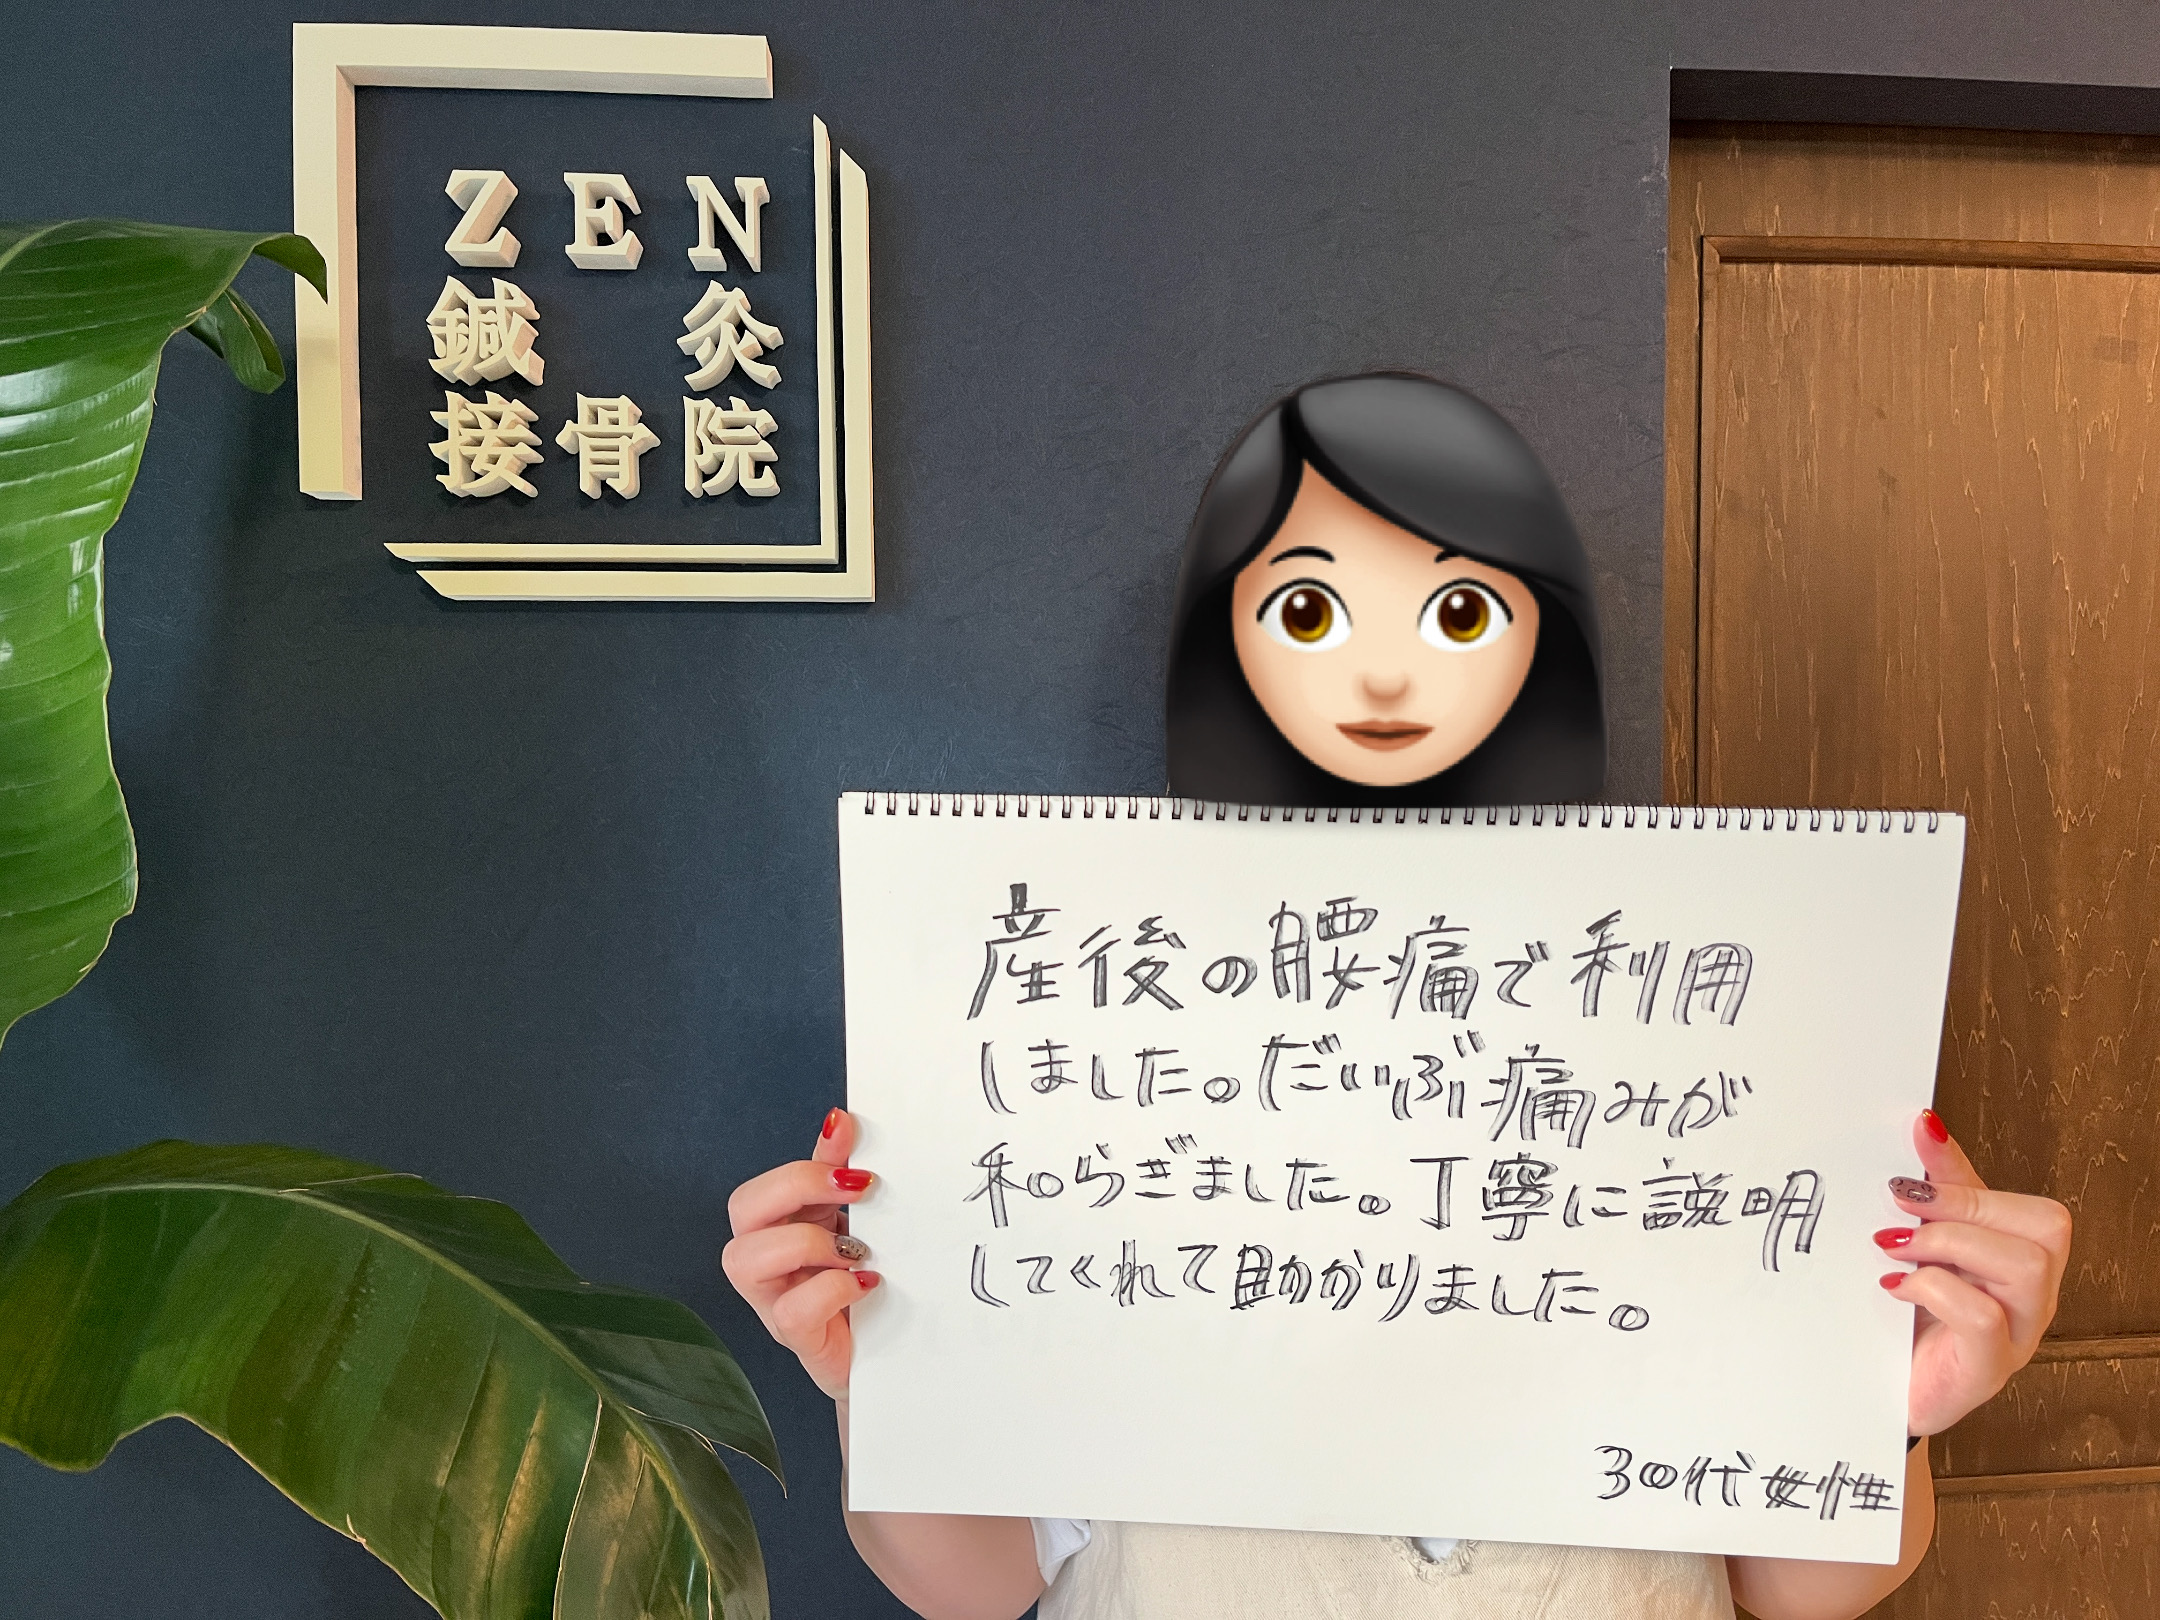 ZEN
鍼灸
接骨院
産後の腰痛で利用
しました。だいぶ痛みが
和らぎました。丁寧に説明
してくれて助かりました。
30代女性